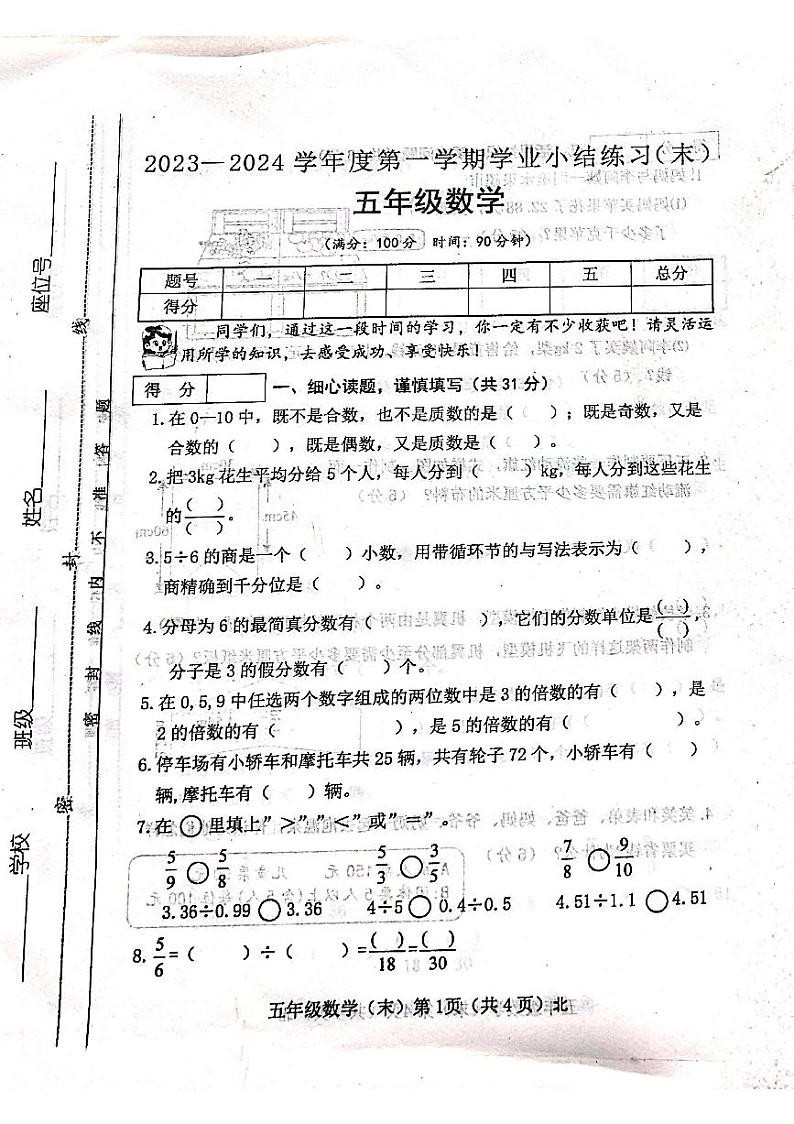 2023—2024学年度第一学期学业小结练习(末)
五年级数学
(满分：100分 时间：90分钟)
题号 一 二 三 四 五 总分
得分
同学们，通过这一段时间的学习，你一定有不少收获吧！请灵活运
用所学的知识，去感受成功、享受快乐！
得 分
一、细心读题，谨慎填写(共31分)
1.在0—10中，既不是合数，也不是质数的是( )；既是奇数，又是
合数的( )，既是偶数，又是质数是( )。
2.把3kg花生平均分给5个人，每人分到( )kg，每人分到这些花生
的( )/( )。
3.5÷6的商是一个( )小数，用带循环节的与写法表示为( )，
商精确到千分位是( )。
4.分母为6的最简真分数有( )，它们的分数单位是( )/( )，
分子是3的假分数有( )个。
5.在0,5,9中任选两个数字组成的两位数中是3的倍数的有( )，是
2的倍数的有( )，是5的倍数的有( )。
6.停车场有小轿车和摩托车共25辆，共有轮子72个，小轿车有( )
辆,摩托车有( )辆。
7.在○里填上”>””<”或”=”。
5/9○5/8 5/3○3/5 7/8○9/10
3.36÷0.99○3.36 4÷5○0.4÷0.5 4.51÷1.1○4.51
8.5/6=( )÷( )=( )/18=( )/30
五年级数学(末)第1页(共4页)北
座位号
姓名
班级
学校
密 封 线
密 封 线 内 不 准 答 题